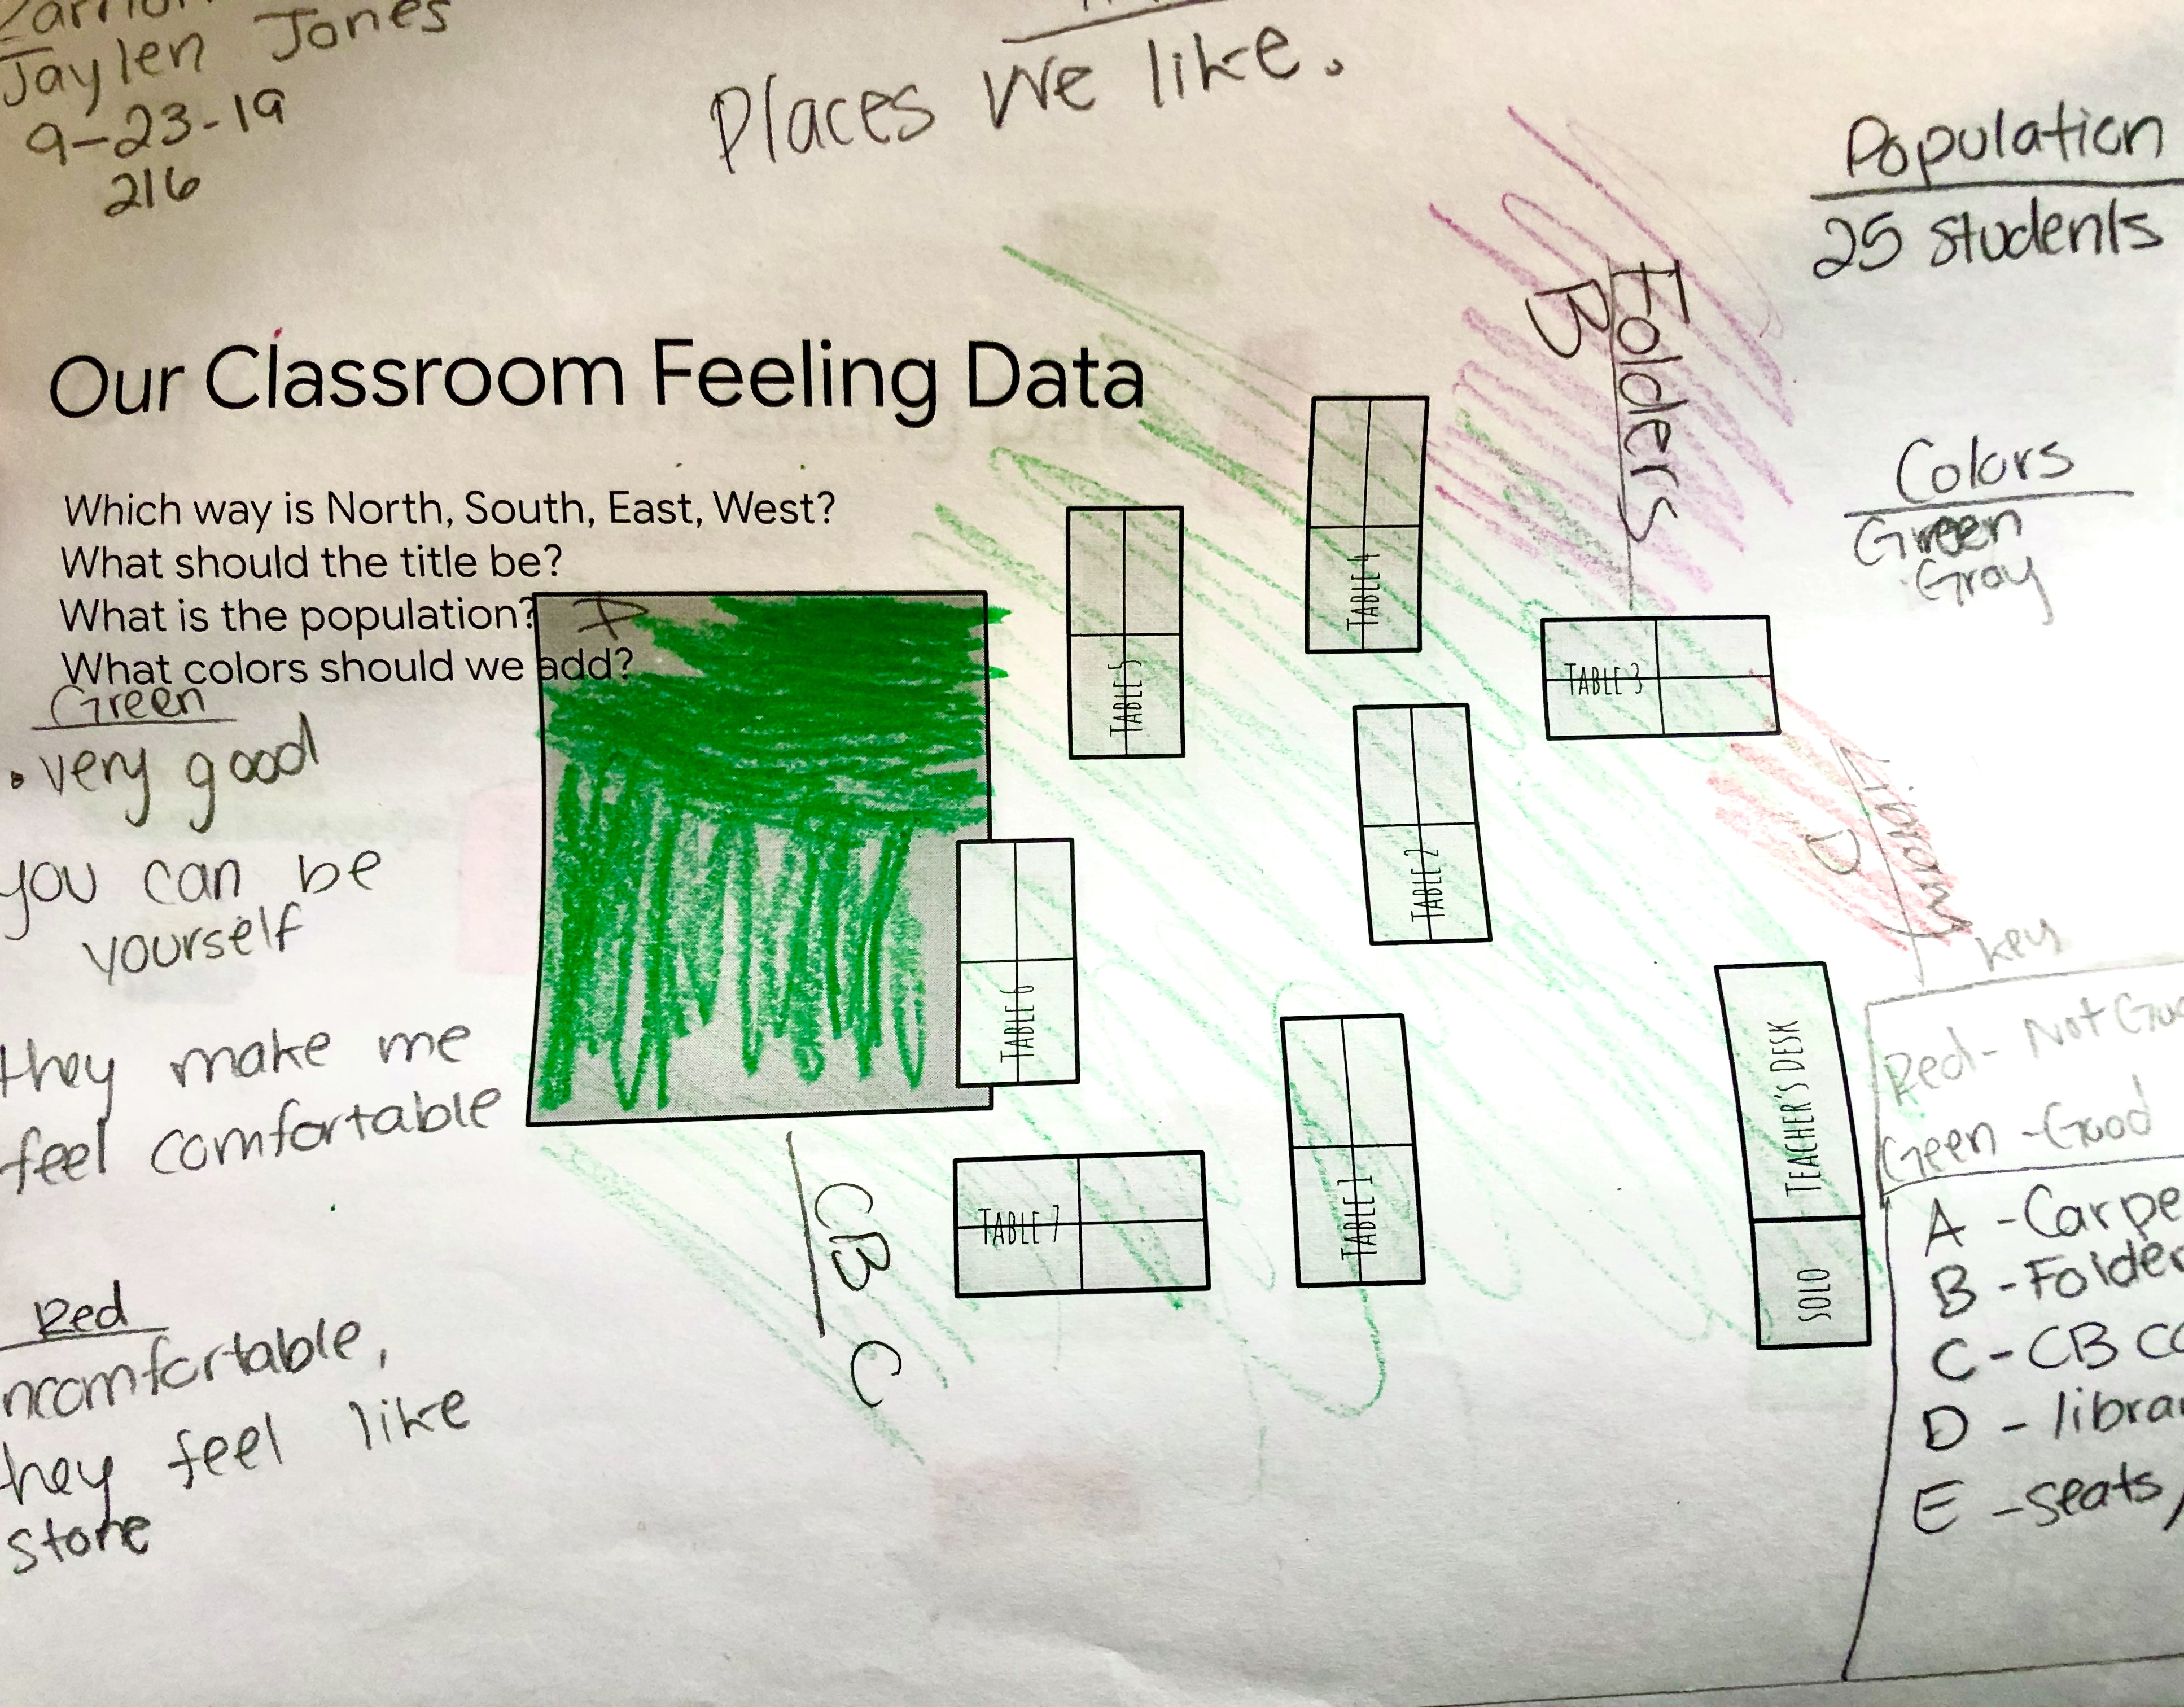 Jaylen Jones
9-23-19
216
Places We like.
Population
25 students
Our Classroom Feeling Data
Which way is North, South, East, West?
What should the title be?
What is the population?
What colors should we add?
Green
• very good
you can be
yourself
they make me
feel comfortable
Red
ncomfortable,
they feel like
store
Folders
B
Colors
Green
Gray
TABLE 4
TABLE 5
TABLE 3
TABLE 2
TABLE 6
TABLE 1
TABLE 7
Library
D
TEACHER'S DESK
SOLO
CB
C
Key
Red - Not Goo
Geen - Good
A - Carpe
B - Folder
C - CB co
D - librar
E - seats,